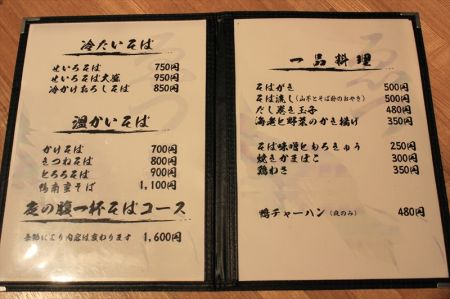 冷たいそば
せいろそば 750円
せいろそば大盛 950円
冷かけおろしそば 850円
温かいそば
かけそば 700円
きつねそば 800円
とろろそば 900円
鴨南蛮そば 1,100円
夜の腹一杯そばコース
季節により内容は変わります 1,600円
一品料理
そばがき 500円
そば流し(山芋とそば粉のおやき) 500円
だし巻き玉子 480円
海老と野菜のかき揚げ 350円
そば味噌ともろきゅう 250円
焼きかまぼこ 300円
鶏わさ 350円
鴨チャーハン(夜のみ) 480円